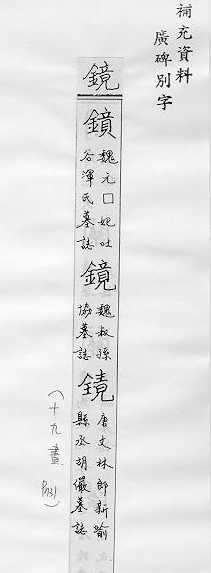 補充資料
廣碑別字
鏡
鏡
魏元□妃吐
谷渾氏墓誌
鏡
魏叔孫
協墓誌
鏡
唐文林郎新喻
縣丞胡儼墓誌
（十九畫
）